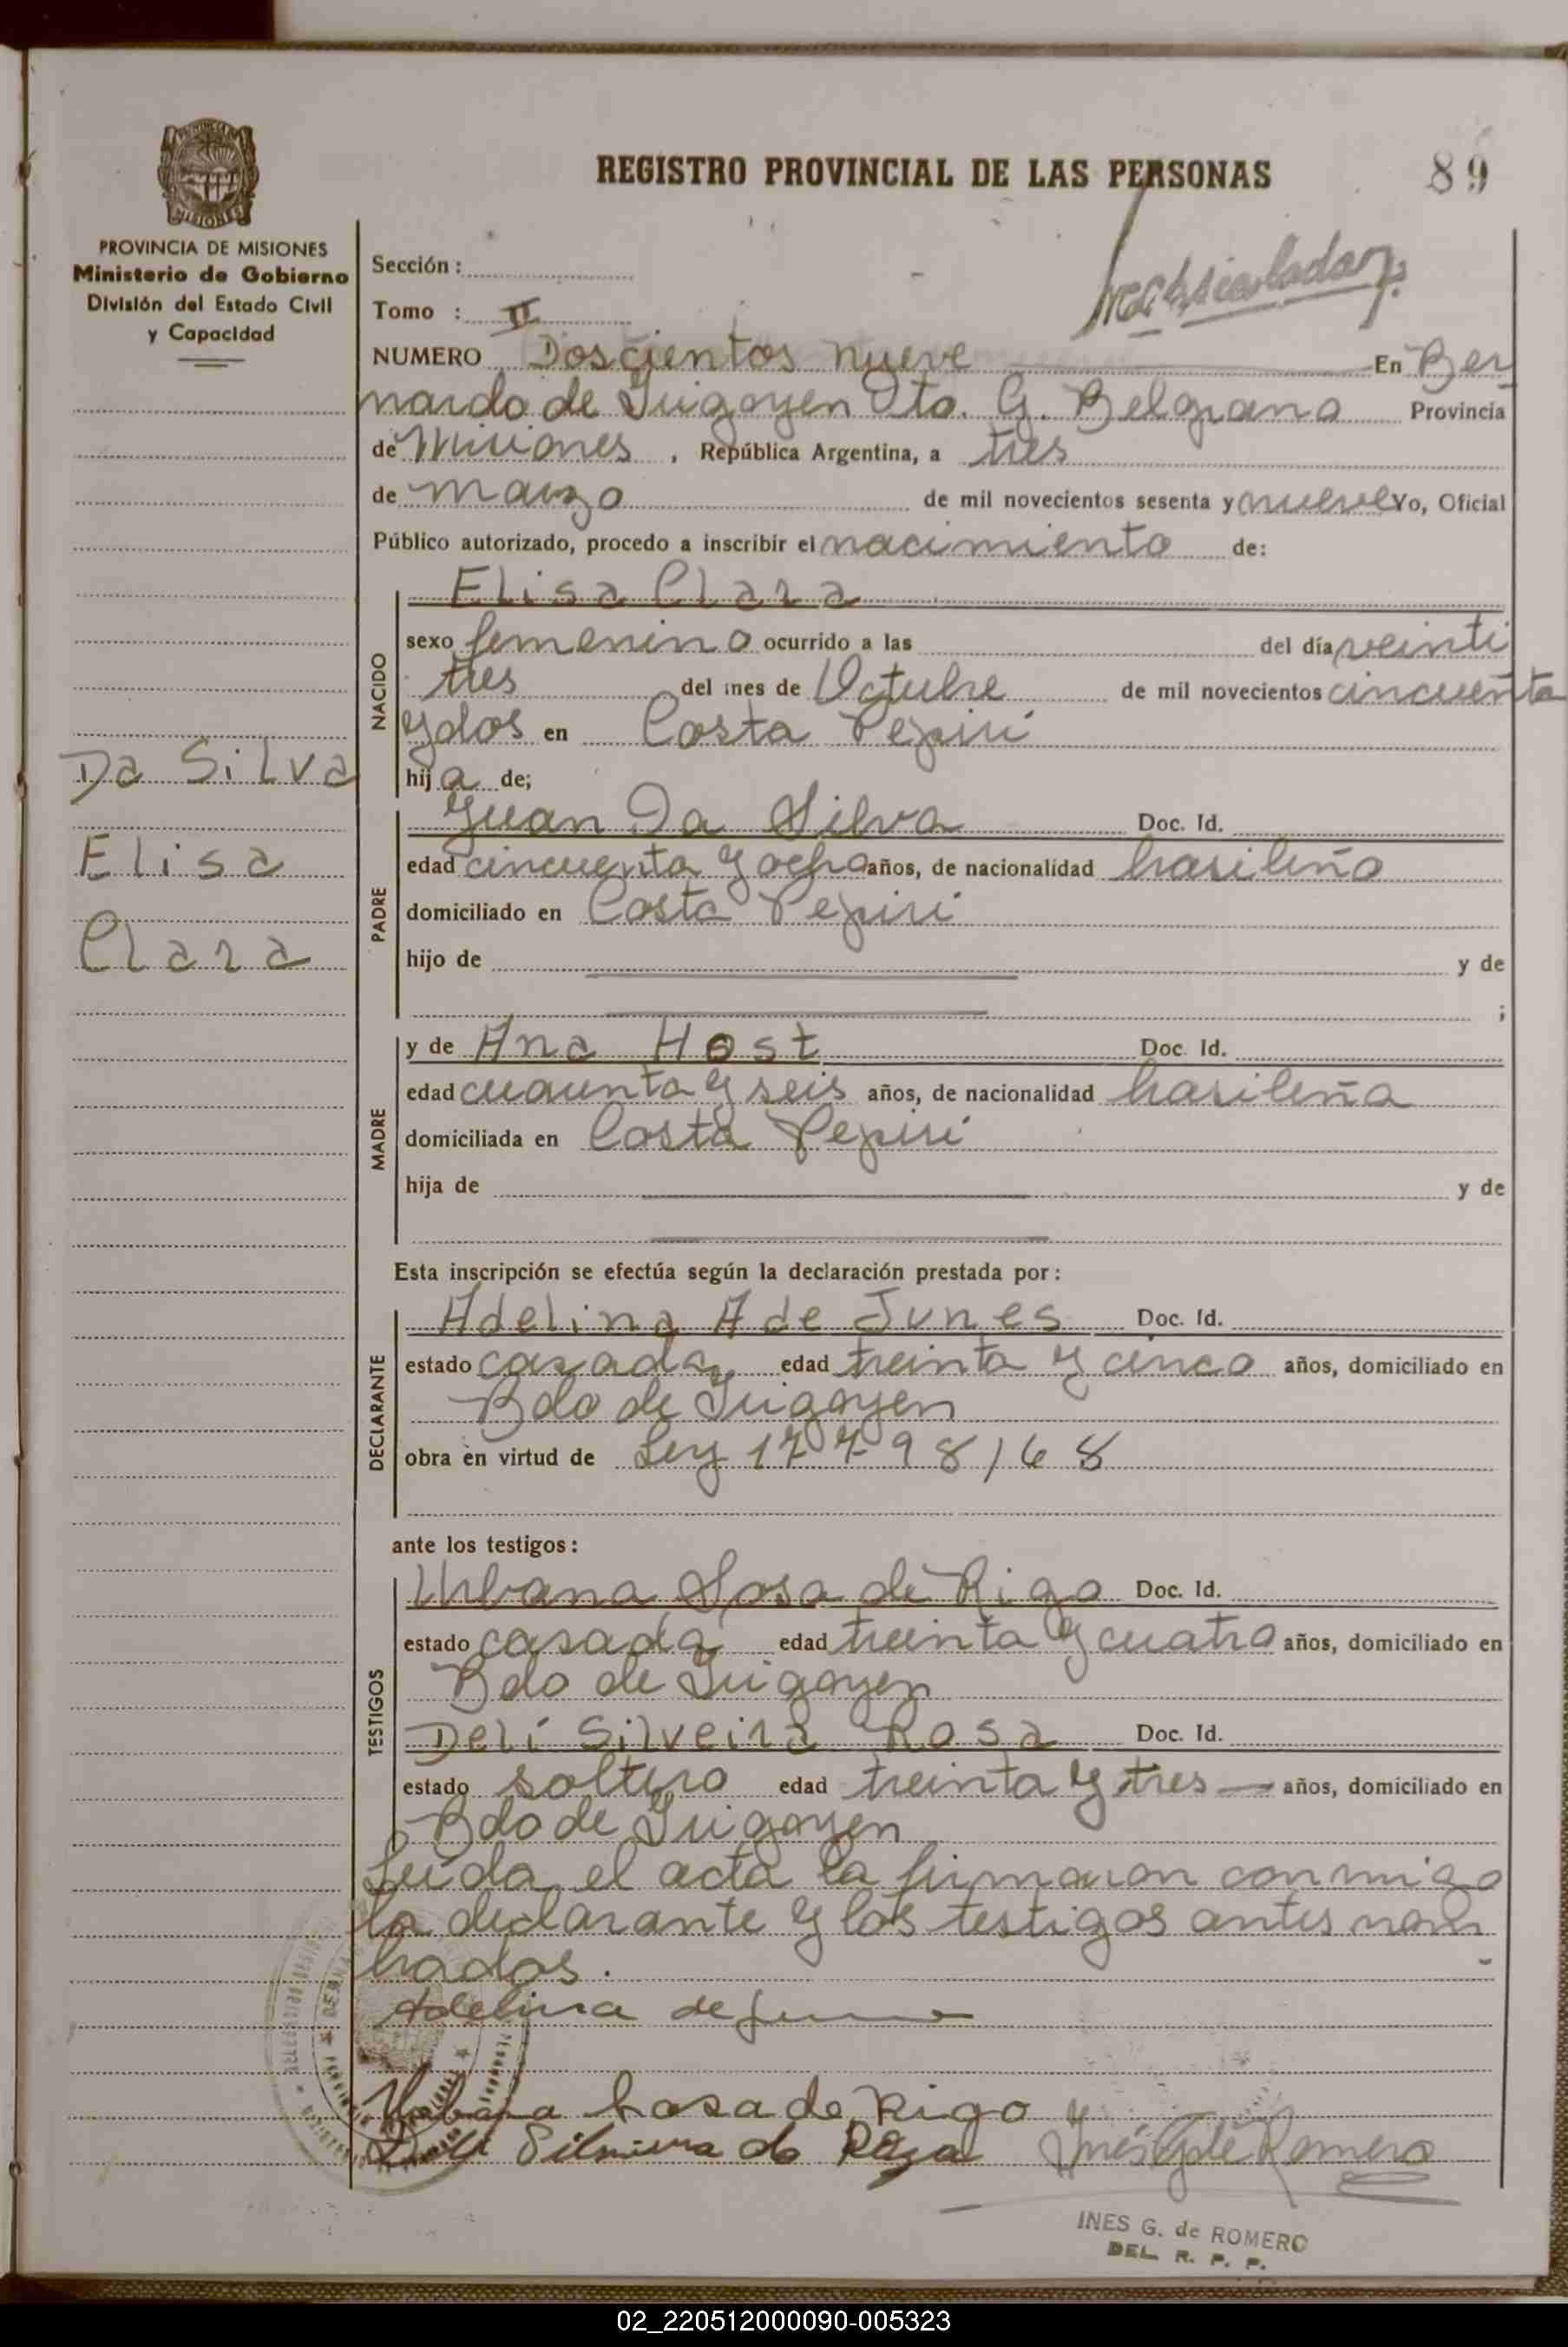 REGISTRO PROVINCIAL DE LAS PERSONAS
89
PROVINCIA DE MISIONES
Ministerio de Gobierno
División del Estado Civil
y Capacidad
Sección :
Tomo : II
NUMERO Doscientos nueve En Ber
nardo de Irigoyen Dto. G. Belgrano Provincia
de Misiones , República Argentina, a tres
de marzo de mil novecientos sesenta y nueve Yo, Oficial
Público autorizado, procedo a inscribir el nacimiento de:
Elisa Clara
NACIDO
sexo femenino ocurrido a las del día veinti
tres del mes de Octubre de mil novecientos cincuenta
y dos en Costa Pepirí
hija de;
Da Silva
Elisa
Clara
PADRE
Juan Da Silva Doc. Id.
edad cincuenta y ocho años, de nacionalidad brasileño
domiciliado en Costa Pepirí
hijo de y de
;
MADRE
y de Ana Host Doc. Id.
edad cuarenta y seis años, de nacionalidad brasileña
domiciliada en Costa Pepirí
hija de y de
Esta inscripción se efectúa según la declaración prestada por :
DECLARANTE
Adelina A de Junes Doc. Id.
estado casada edad treinta y cinco años, domiciliado en
Bdo de Irigoyen
obra en virtud de Ley 17798/68
ante los testigos :
TESTIGOS
Urbana Sosa de Rigo Doc. Id.
estado casada edad treinta y cuatro años, domiciliado en
Bdo de Irigoyen
Delí Silveira Rosa Doc. Id.
estado soltero edad treinta y tres años, domiciliado en
Bdo de Irigoyen
Leída el acta la firmaron conmigo
la declarante y los testigos antes nom
brados.
Adelina de
Sosa de Rigo
da Roza
Inés G de Romero
INES G. de ROMERO
DEL. R. P. P.
02_220512000090-005323